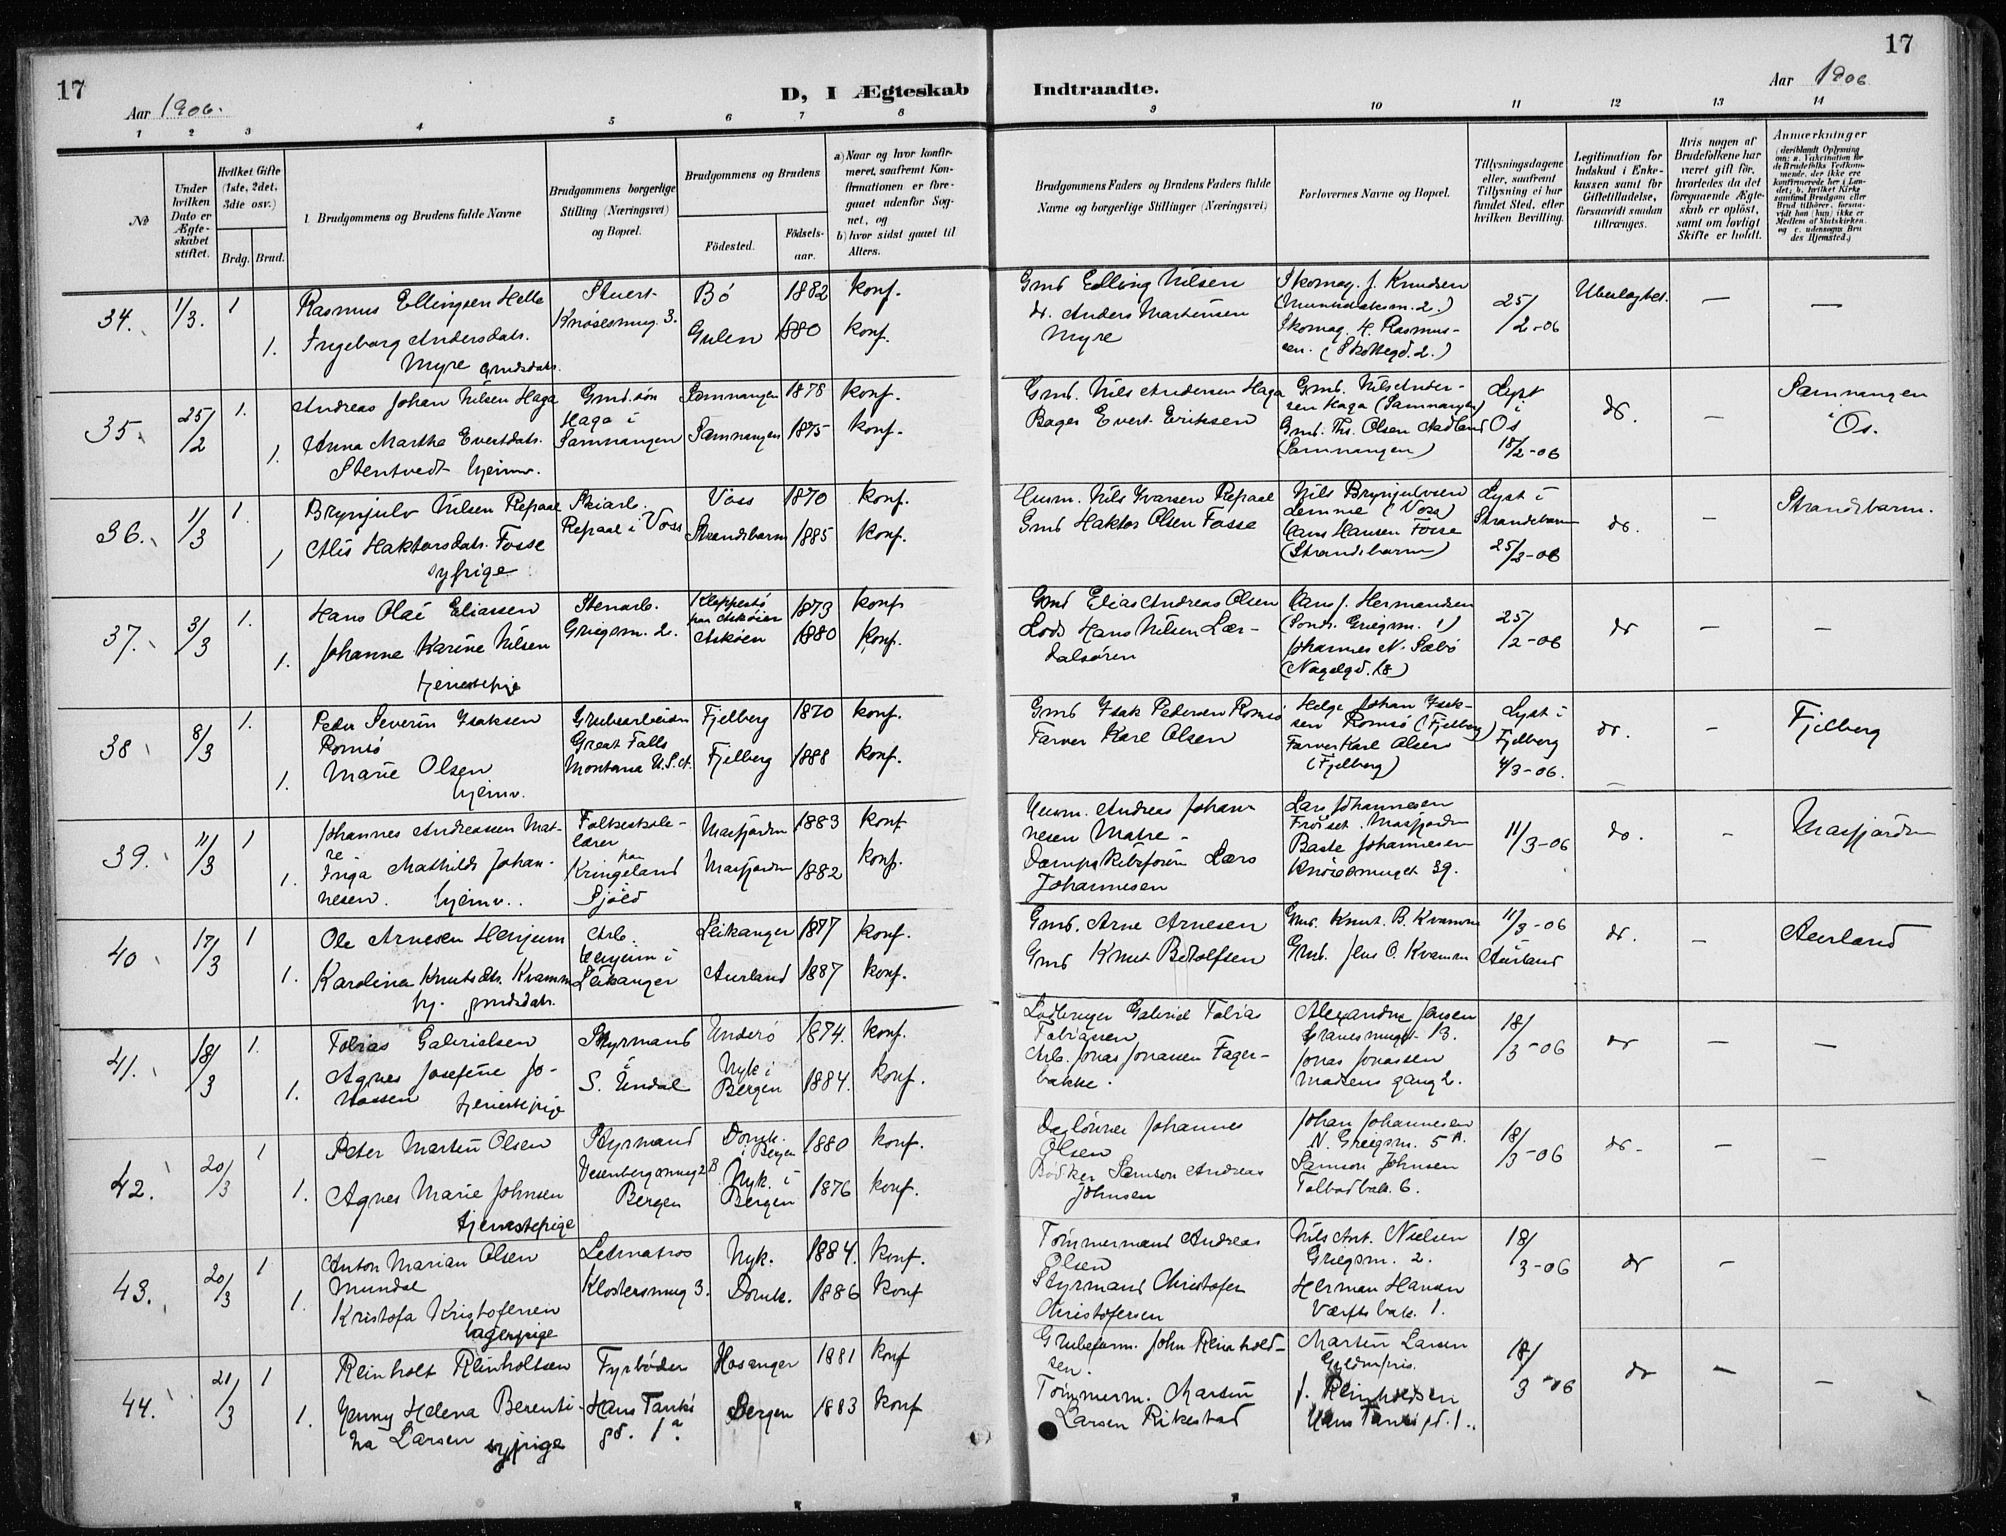 17
Aar 1906.
D, I Ægteskab Indtraadte.
Aar 1906
17
1 2 3 4 5 6 7 8 9 10 11 12 13 14
No
Under hvilken Dato er Ægteskabet stiftet.
Hvilket Gifte (1ste, 2det, 3die osv.)
Brdg. Brud.
1. Brudgommens og Brudens fulde Navne
Brudgommens borgerlige Stilling (Næringsvei) og Bopæl.
Brudgommens og Brudens
Fødested.
Fødselsaar.
a) Naar og hvor konfirmeret, saafremt Konfirmationen er foregaaet udenfor Sognet, og
b) hvor sidst gaaet til Alters.
Brudgommens Faders og Brudens Faders fulde Navne og borgerlige Stillinger (Næringsvei)
Forlovernes Navne og Bopæl.
Tillysningsdagene eller, saafremt Tillysning ei har fundet Sted, efter hvilken Bevilling.
Legitimation for Indskud i Enkekassen samt for Giftetilladelse, forsaavidt saadan tiltrænges.
Hvis nogen af Brudefolkene har været gift før, hvorledes da det foregaaende Ægteskab er opløst, samt om lovligt Skifte er holdt.
Anmærkninger (deriblandt Oplysning om: a. Vakcination for de Brudefolks Vedkommende, der ikke ere konfirmerede her i Landet; b. hvilket Kirke Samfund eller Brudgom eller Brud tilhører, forsaavidt han (hun) ikke er Medlem af Statskirken, og c. udensogns Brudes Hjemsted.)
34. 1/3. 1 Rasmus Ellingsen Helle Stuert- Bø 1882 konf.
Knøsesmug. 3.
1. Ingeborg Andersdatr. Gulen 1880 konf.
Myre gmdsdatr.
Gmd Elling Nilsen
dr. Anders Martinsen
Myre
Skomag. J. Knudsen
Skomag. H. Rasmussen. (Skottegd. 2.)
25/2-06 —
—
35. 25/2 1. Andreas Johan Nilsen Haga Gmd.søn Samnangen 1878 konf.
Haga i
1. Anna Martha Evertdatr. Samnangen Samnangen 1875 konf.
Stentvedt hjemv.
Gmd. Nils Andersen Haga
Bager Evert Eriksen
Gmd. Nils Andersen Haga (Samnangen)
Gmd. Ths. Olsen Aadland
(Samnangen)
Lyst
i
Os
18/2-06
do. —
Samnangen
i Os.
36. 1/3 1. Brynjulv Nilsen Repaal Skiarb. Voss 1870 konf.
Repaal i Voss
1 Alis Haktorsdatr. Fosse Strandebarm 1885 konf.
sypige
Husm. Nils Ivarsen Repaal
Gmd Haktor Olsen Fosse
Nils Brynjulvsen
Lemme (Voss)
Hans Hansen Fosse
(Strandebarm)
Lyst i
Strandebarm
25/2-06
do. —
Strandebarm.
37. 3/3 1. Hans Olai Eliassen Stenarb. Kleppestø 1873 konf
Griegsm. 2. paa Askøien
1. Johanne Karine Nilsen Askøen 1880 konf.
tjenestepige
Gmd Elias Andreas Olsen
Lods Hans Nilsen Lærdalsøren
Hans J. Hermandsen
Johannes N. Sæbø
(Nagelgd. 18)
25/2-06
do — —
38 8/3 1. Peder Severin Isaksen Grubearbeider Fjelberg 1870 konf.
Romsø Great Falls
1. Marie Olsen Montana U.S.A. Fjelberg 1888 konf.
hjemv.
Gmd Isak Pedersen Romsø
Farver Karl Olsen
Helge Johan Isaksen Romsø (Fjelberg)
Farver Karl Olsen
(Fjelberg)
Lyst i
Fjelberg
4/3-06.
do. —
Fjelberg
39. 11/3 1 Johannes Andreassen Matre Folkeskolelærer Masfjorden 1883 konf
paa
1. Inga Mathilde Johannesen. hjemv. Kringeland Masfjorden 1882 konf.
Husm. Andreas Johannesen Matre -
Dampskibsfører Lars
Johannesen
Lars Johannesen
Frøiset. Masfjorden
Baste Johannesen
Knøsesmuget 39.
11/3-06
do. —
Masfjorden
40 17/3 1 Ole Arnesen Henjum Arb. Leikanger 1877 konf.
Henjum i
1. Karolina Knutsdtr. Kvamm Leikanger Aurland 1887 konf.
hj. gmdsdatr.
Gmd. Arne Arnesen
Gmd Knut Botolfsen
Gmd. Knut. B. Kvamme
Gmd. Jens O. Kvamm
11/3-06
Aurland
do. —
Aurland
41. 18/3 1. Tobias Gabrielsen Styrmand 1874. konf.
i
S. Undal
1. Agnes Josefine Jonassen Nyk i Bergen 1884. konf.
tjenestepige
Gabriel Tobias
Tobiassen
Arb. Jonas Jonassen Fagerbakke.
Alexander Jansen
Jonas Jonassen
Madsens gang 2.
18/3-06
do — —
42. 20/3 1 Peter Martin Olsen Styrmand Domk. i Bergen 1880 konf.
1. Agnes Marie Johnsen Bergen Nyk. i Bergen 1876 konf.
tjenestepige
Dagløner Johannes
Olsen
Bødker Samson Andreas
Johnsen
Johan Johannesen
N. Griegsm. 5 A.
Samson Johnsen
Tolbodbak. 6.
18/3-06
do. —
43. 20/3 1 Anton Marian Olsen Letmatros Nyk. 1884. konf.
Mundal Klostersmug 3.
1. Kristofa Kristofersen Domk. 1886 konf
Tømmermand Andreas
Olsen
Styrmand Christofer
Christofersen
Nils Ant. Nielsen
Griegsm. 2.
Herman Hansen
Værftsbak. 1.
18/3-06
do —
44. 21/3 1 Reinholt Reinholtsen Fyrbøder Hosanger 1881 konf
1. Jenny Helena Berentina Larsen sypige Hans Tanks gd. 1a Bergen 1883 konf
Grubeform. John Reinholdsen.
Tømmerm. Martin
Larsen Rikestad
Martin Larsen
J. Reinholdsen
Hans Tanks gd. 1.
18/3-06
do — —